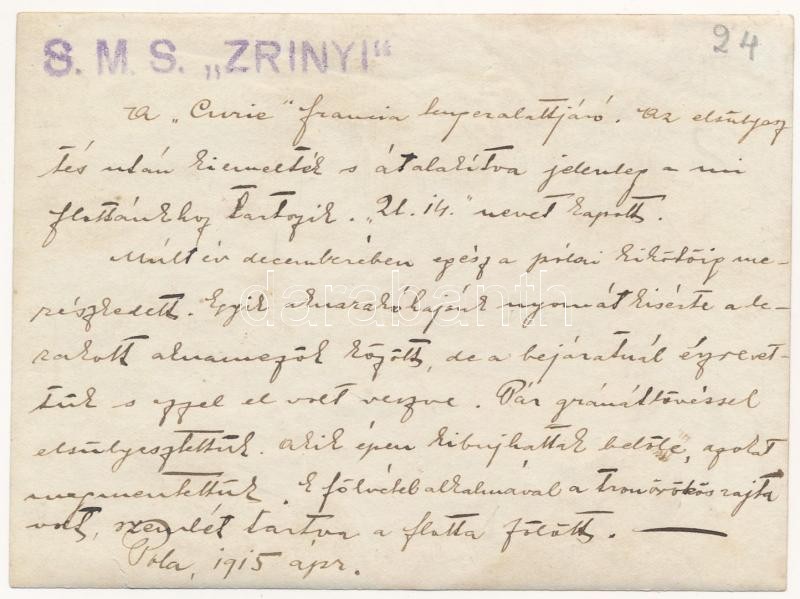 S. M. S. „ZRINYI“
24
A „Curie“ francia tengeralattjáró. Az elsülyesz
tés után kiemelték s átalakítva jelenleg a mi
flottánkhoz tartozik. „U. 14.“ nevet kapott.
Múlt év decemberében egész a pólai kikötőig me-
részkedett. Egyik aknarakóhajónk nyomát kisérte a le-
rakott aknamezők között, de a bejáratnál észrevet-
tük s ezzel el volt veszve. Pár gránátlövéssel
elsülyesztettük. Akik épen kibujhattak belőle, azokat
megmentettük. E fölvétel alkalmával a trónörökös rajta
volt, szemlét tartva a flotta fölött. —
Pola, 1915 ápr.
darabanth